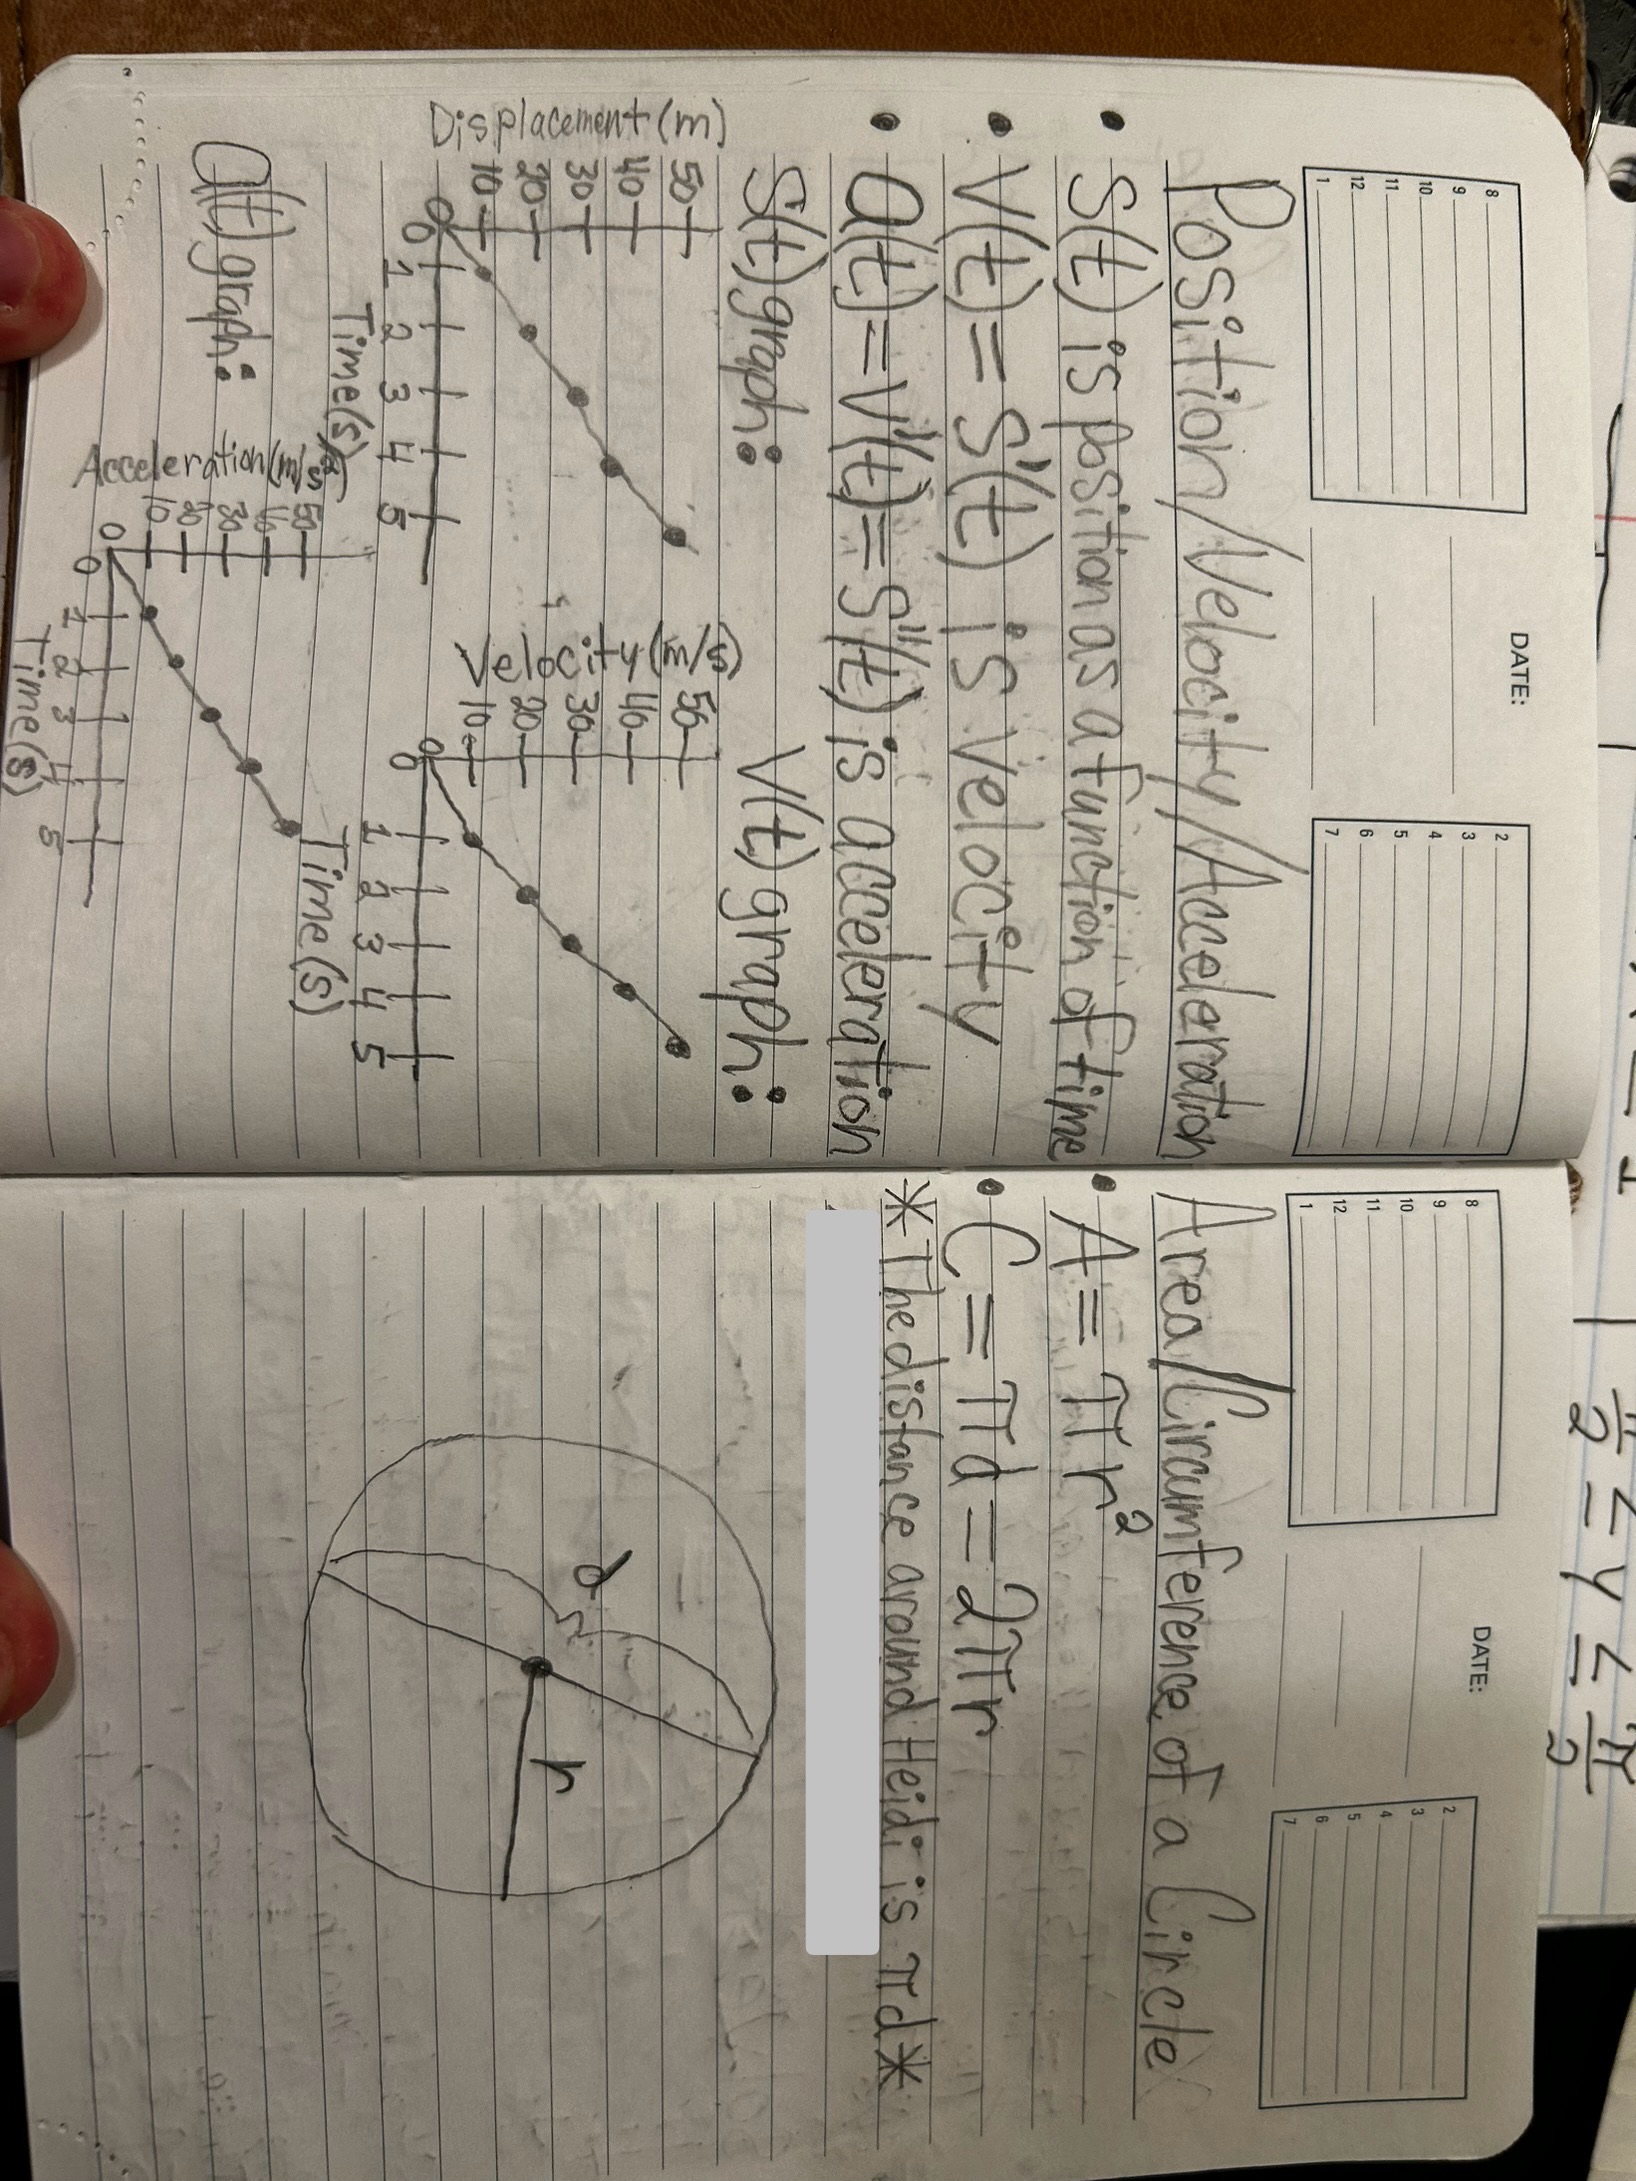 DATE:
8
9
10
11
12
1
2
3
4
5
6
7
Position/Velocity/Acceleration
• S(t) is position as a function of time
• V(t) = S'(t) is velocity
• a(t) = V'(t) = S''(t) is acceleration
S(t) graph:
Displacement (m)
50
40
30
20
10
0
0 1 2 3 4 5
Time (s)
V(t) graph:
Velocity (m/s)
50
40
30
20
10
0
0 1 2 3 4 5
Time (s)
a(t) graph:
Acceleration (m/s²)
50
40
30
20
10
0
0 1 2 3 4 5
Time (s)
DATE:
8
9
10
11
12
1
2
3
4
5
6
7
Area/Circumference of a Circle
• A = πr²
• C = πd = 2πr
*The distance around Heidi is πd*
d
r
π/2 ≤ y ≤ π/2